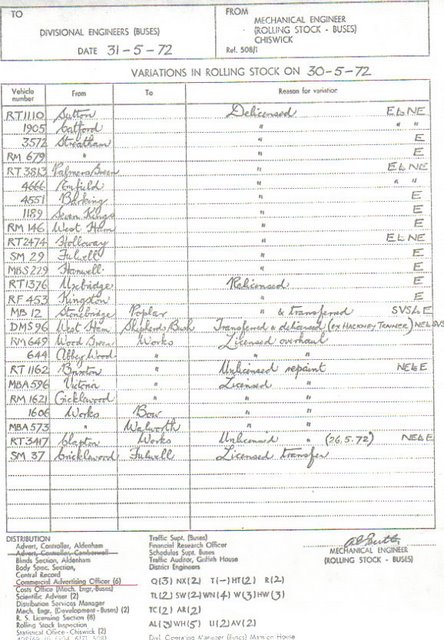 TO
FROM
DIVISIONAL ENGINEERS (BUSES)
MECHANICAL ENGINEER
(ROLLING STOCK - BUSES)
CHISWICK
DATE 31-5-72
Ref. 508/1
VARIATIONS IN ROLLING STOCK ON 30-5-72
Vehicle number From To Reason for variation
RT1110 Sutton Delicensed E & NE
1905 Catford " " "
3572 Streatham " E
RM 679 " " E
RT 3813 Palmers Green " E & NE
4666 Enfield " " "
4551 Barking " E
1189 Seven Kings " E
RM 146 West Ham " E
RT2474 Holloway " E & NE
SM 29 Fulwell " E
MBS229 Hanwell " E
RT1376 Uxbridge Relicensed E
RF 453 Kingston " E
MB 12 Stonebridge Poplar " & transferred SVS & E
DMS96 West Ham Shepherds Bush Transferred & delicensed (ex HACKNEY TRAINER) NE & SVS
RM649 Wood Green Works Licensed overhaul
644 Abbey Wood " " "
RT 1162 Brixton " Unlicensed repaint NE & E
MBA596 Victoria " Licensed "
RM 1621 Cricklewood " " "
1606 Works Bow " "
MBA573 " Walworth " "
RT3417 Clapton Works Unlicensed " (26.5.72) NE & E
SM 37 Cricklewood Fulwell Licensed transfer
DISTRIBUTION
Advert. Controller, Aldenham
Advert. Controller, Camberwell
Blinds Section, Aldenham
Body Spec. Section,
Central Record
Commercial Advertising Officer (6)
Costs Office (Mech. Engr. Buses)
Scientific Adviser (2)
Distribution Services Manager
Mech. Engr. (Development - Buses) (2)
R. S. Licensing Officer
Rolling Stock Inspection
Statistical Office - Chiswick (2)
Traffic Supt. (Buses)
Financial Research Officer
Schedules Supt. Buses
Traffic Auditor, Griffith House
District Engineers
Q(3) NX(2) T(-) HT(2) R(2)
TL(2) SW(2) WN(4) W(3) HW(3)
TC(2) AR(2)
AL(3) WH(5) U(2) AV(2)
Divl. Operating Manager (Buses) Manson House
MECHANICAL ENGINEER
(ROLLING STOCK - BUSES)